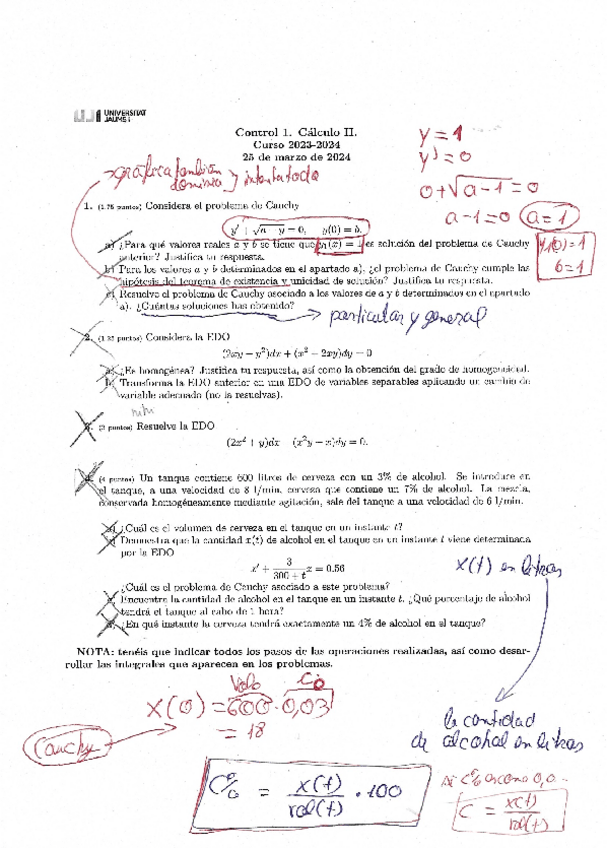 UNIVERSITAT
JAUME I
Control 1. Cálculo II.
Curso 2023-2024
25 de marzo de 2024
y = 1
y' = 0
0 + √a-1 = 0
a-1=0 a=1
y(0)=1
b=1
gráfica también
dominio y intentatodo
1. (1.75 puntos) Considera el problema de Cauchy
y' + √a − y = 0, y(0) = b.
a) ¿Para qué valores reales a y b se tiene que y₁(x) = 1 es solución del problema de Cauchy
anterior? Justifica tu respuesta.
b) Para los valores a y b determinados en el apartado a), ¿el problema de Cauchy cumple las
hipótesis del teorema de existencia y unicidad de solución? Justifica tu respuesta.
c) Resuelve el problema de Cauchy asociado a los valores de a y b determinados en el apartado
a). ¿Cuántas soluciones has obtenido?
particular y general
2. (1.25 puntos) Considera la EDO
(2xy − y²)dx + (x² − 2xy)dy = 0
a) ¿Es homogénea? Justifica tu respuesta, así como la obtención del grado de homogeneidad.
b) Transforma la EDO anterior en una EDO de variables separables aplicando un cambio de
variable adecuado (no la resuelvas).
3. (3 puntos) Resuelve la EDO
(2x² + y)dx + (x²y − x)dy = 0.
4. (4 puntos) Un tanque contiene 600 litros de cerveza con un 3% de alcohol. Se introduce en
el tanque, a una velocidad de 8 l/min, cerveza que contiene un 7% de alcohol. La mezcla,
conservada homogéneamente mediante agitación, sale del tanque a una velocidad de 6 l/min.
a) ¿Cuál es el volumen de cerveza en el tanque en un instante t?
b) Demuestra que la cantidad x(t) de alcohol en el tanque en un instante t viene determinada
por la EDO
x' + 3/(300 + t) x = 0.56
¿Cuál es el problema de Cauchy asociado a este problema?
c) Encuentre la cantidad de alcohol en el tanque en un instante t. ¿Qué porcentaje de alcohol
tendrá el tanque al cabo de 1 hora?
d) ¿En qué instante la cerveza tendrá exactamente un 4% de alcohol en el tanque?
x(t) en litros
NOTA: tenéis que indicar todos los pasos de las operaciones realizadas, así como desar-
rollar las integrales que aparecen en los problemas.
Vol₀ C₀
x(0) = 600 · 0,03
= 18
Cauchy
la cantidad
de alcohol en litros
C% = x(t)/vol(t) · 100
si C% es como 0,0..
C = x(t)/vol(t)